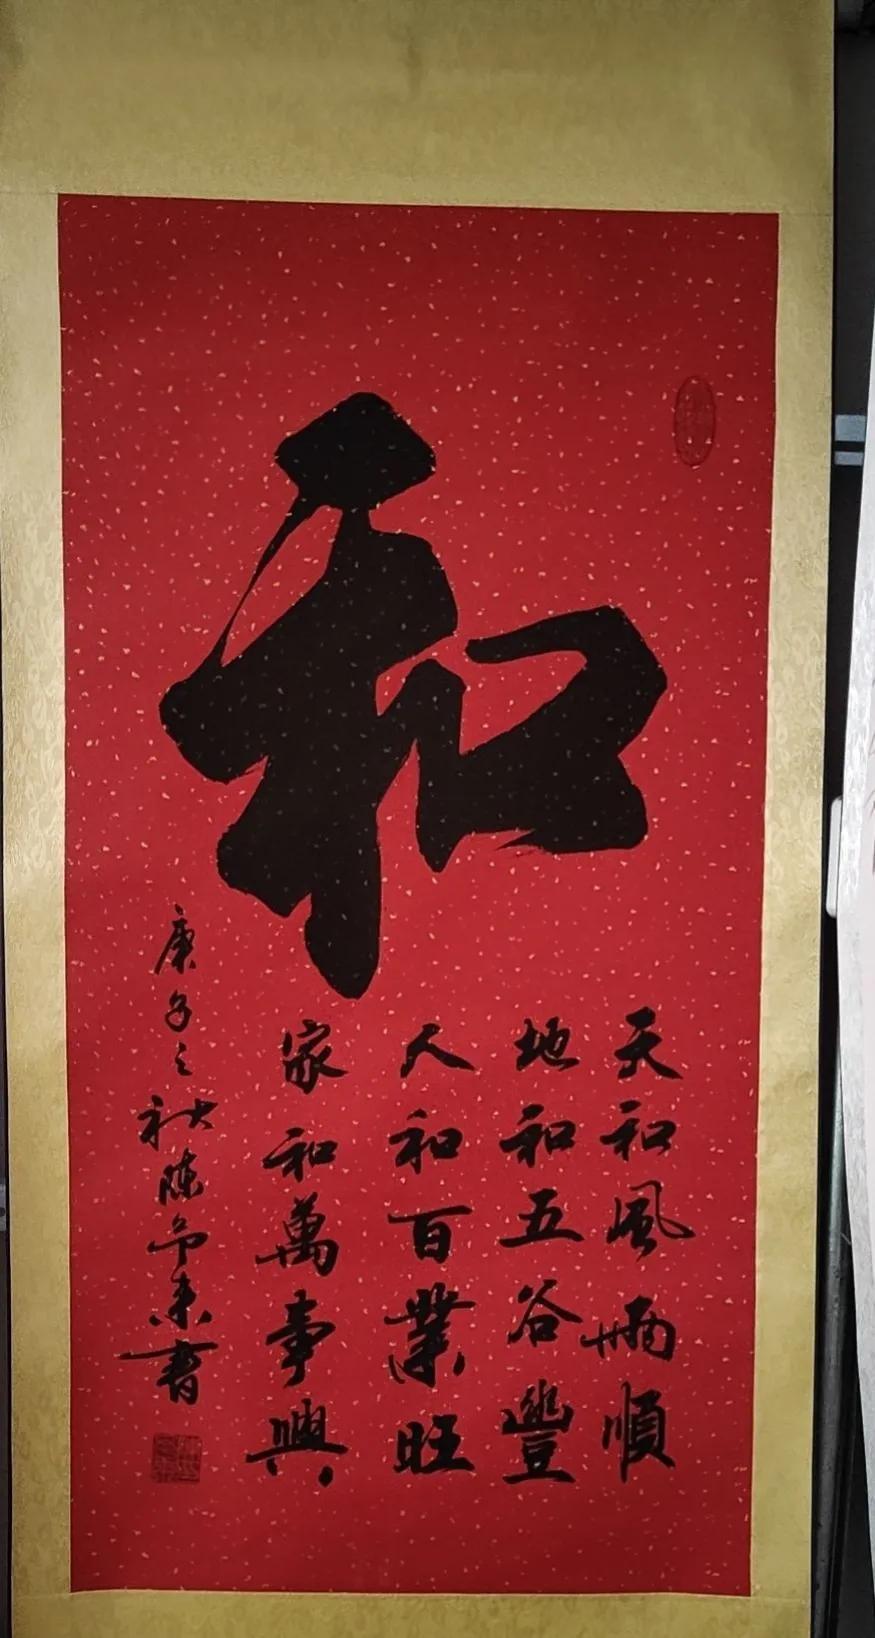 和
天和風雨順
地和五谷豐
人和百業旺
家和萬事興
庚子之秋陈予来書